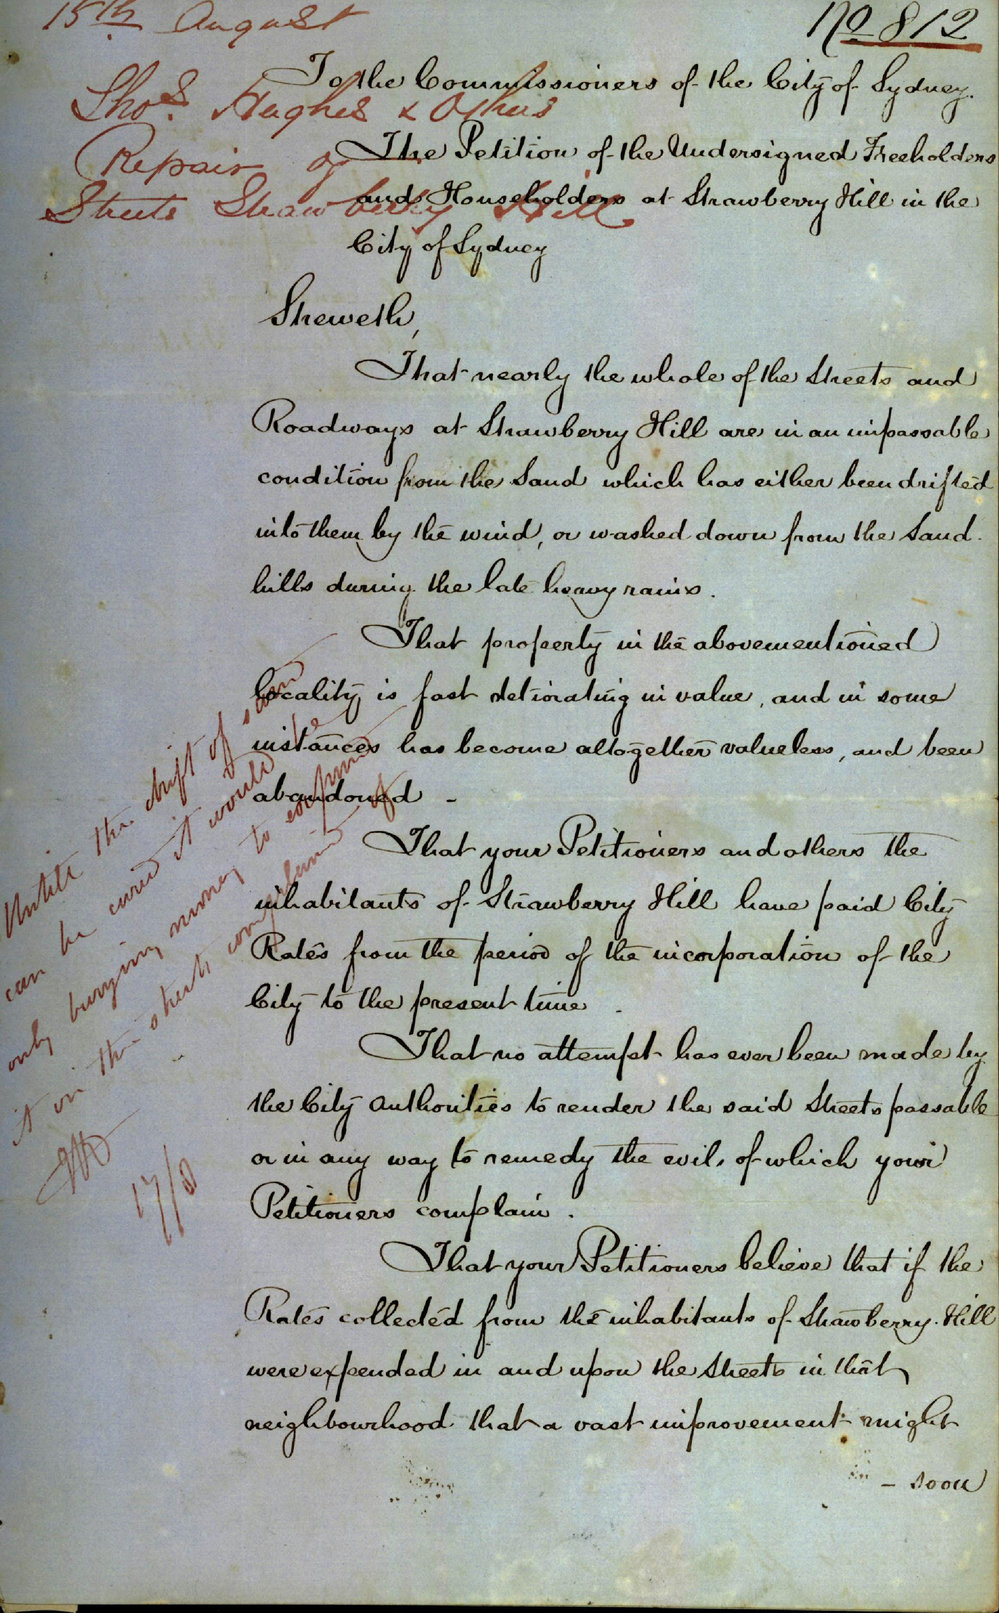 15th August
No 812
Thos. Hughes & Others
Repair of
Streets Strawberry Hill
To the Commissioners of the City of Sydney.
The Petition of the Undersigned Freeholders
and Householders at Strawberry Hill in the
City of Sydney
Sheweth,
That nearly the whole of the Streets and
Roadways at Strawberry Hill are in an impassable
condition from the Sand which has either been drifted
into them by the wind, or washed down from the Sand
hills during the late heavy rains.
That property in the abovementioned
locality is fast detiorating in value, and in some
instances has become altogether valueless, and been
abandoned -
That your Petitioners and others the
inhabitants of Strawberry Hill have paid City
Rates from the period of the incorporation of the
City to the present time.
That no attempt has ever been made by
the City Authorities to render the said Streets passable
or in any way to remedy the evil, of which your
Petitioners complain.
That your Petitioners believe that if the
Rates collected from the inhabitants of Strawberry Hill
were expended in and upon the Streets in that
neighbourhood that a vast improvement might
- soon
Untill the drift of
can be cured it would be
only burying money to expend
it on the streets complained of
17/8